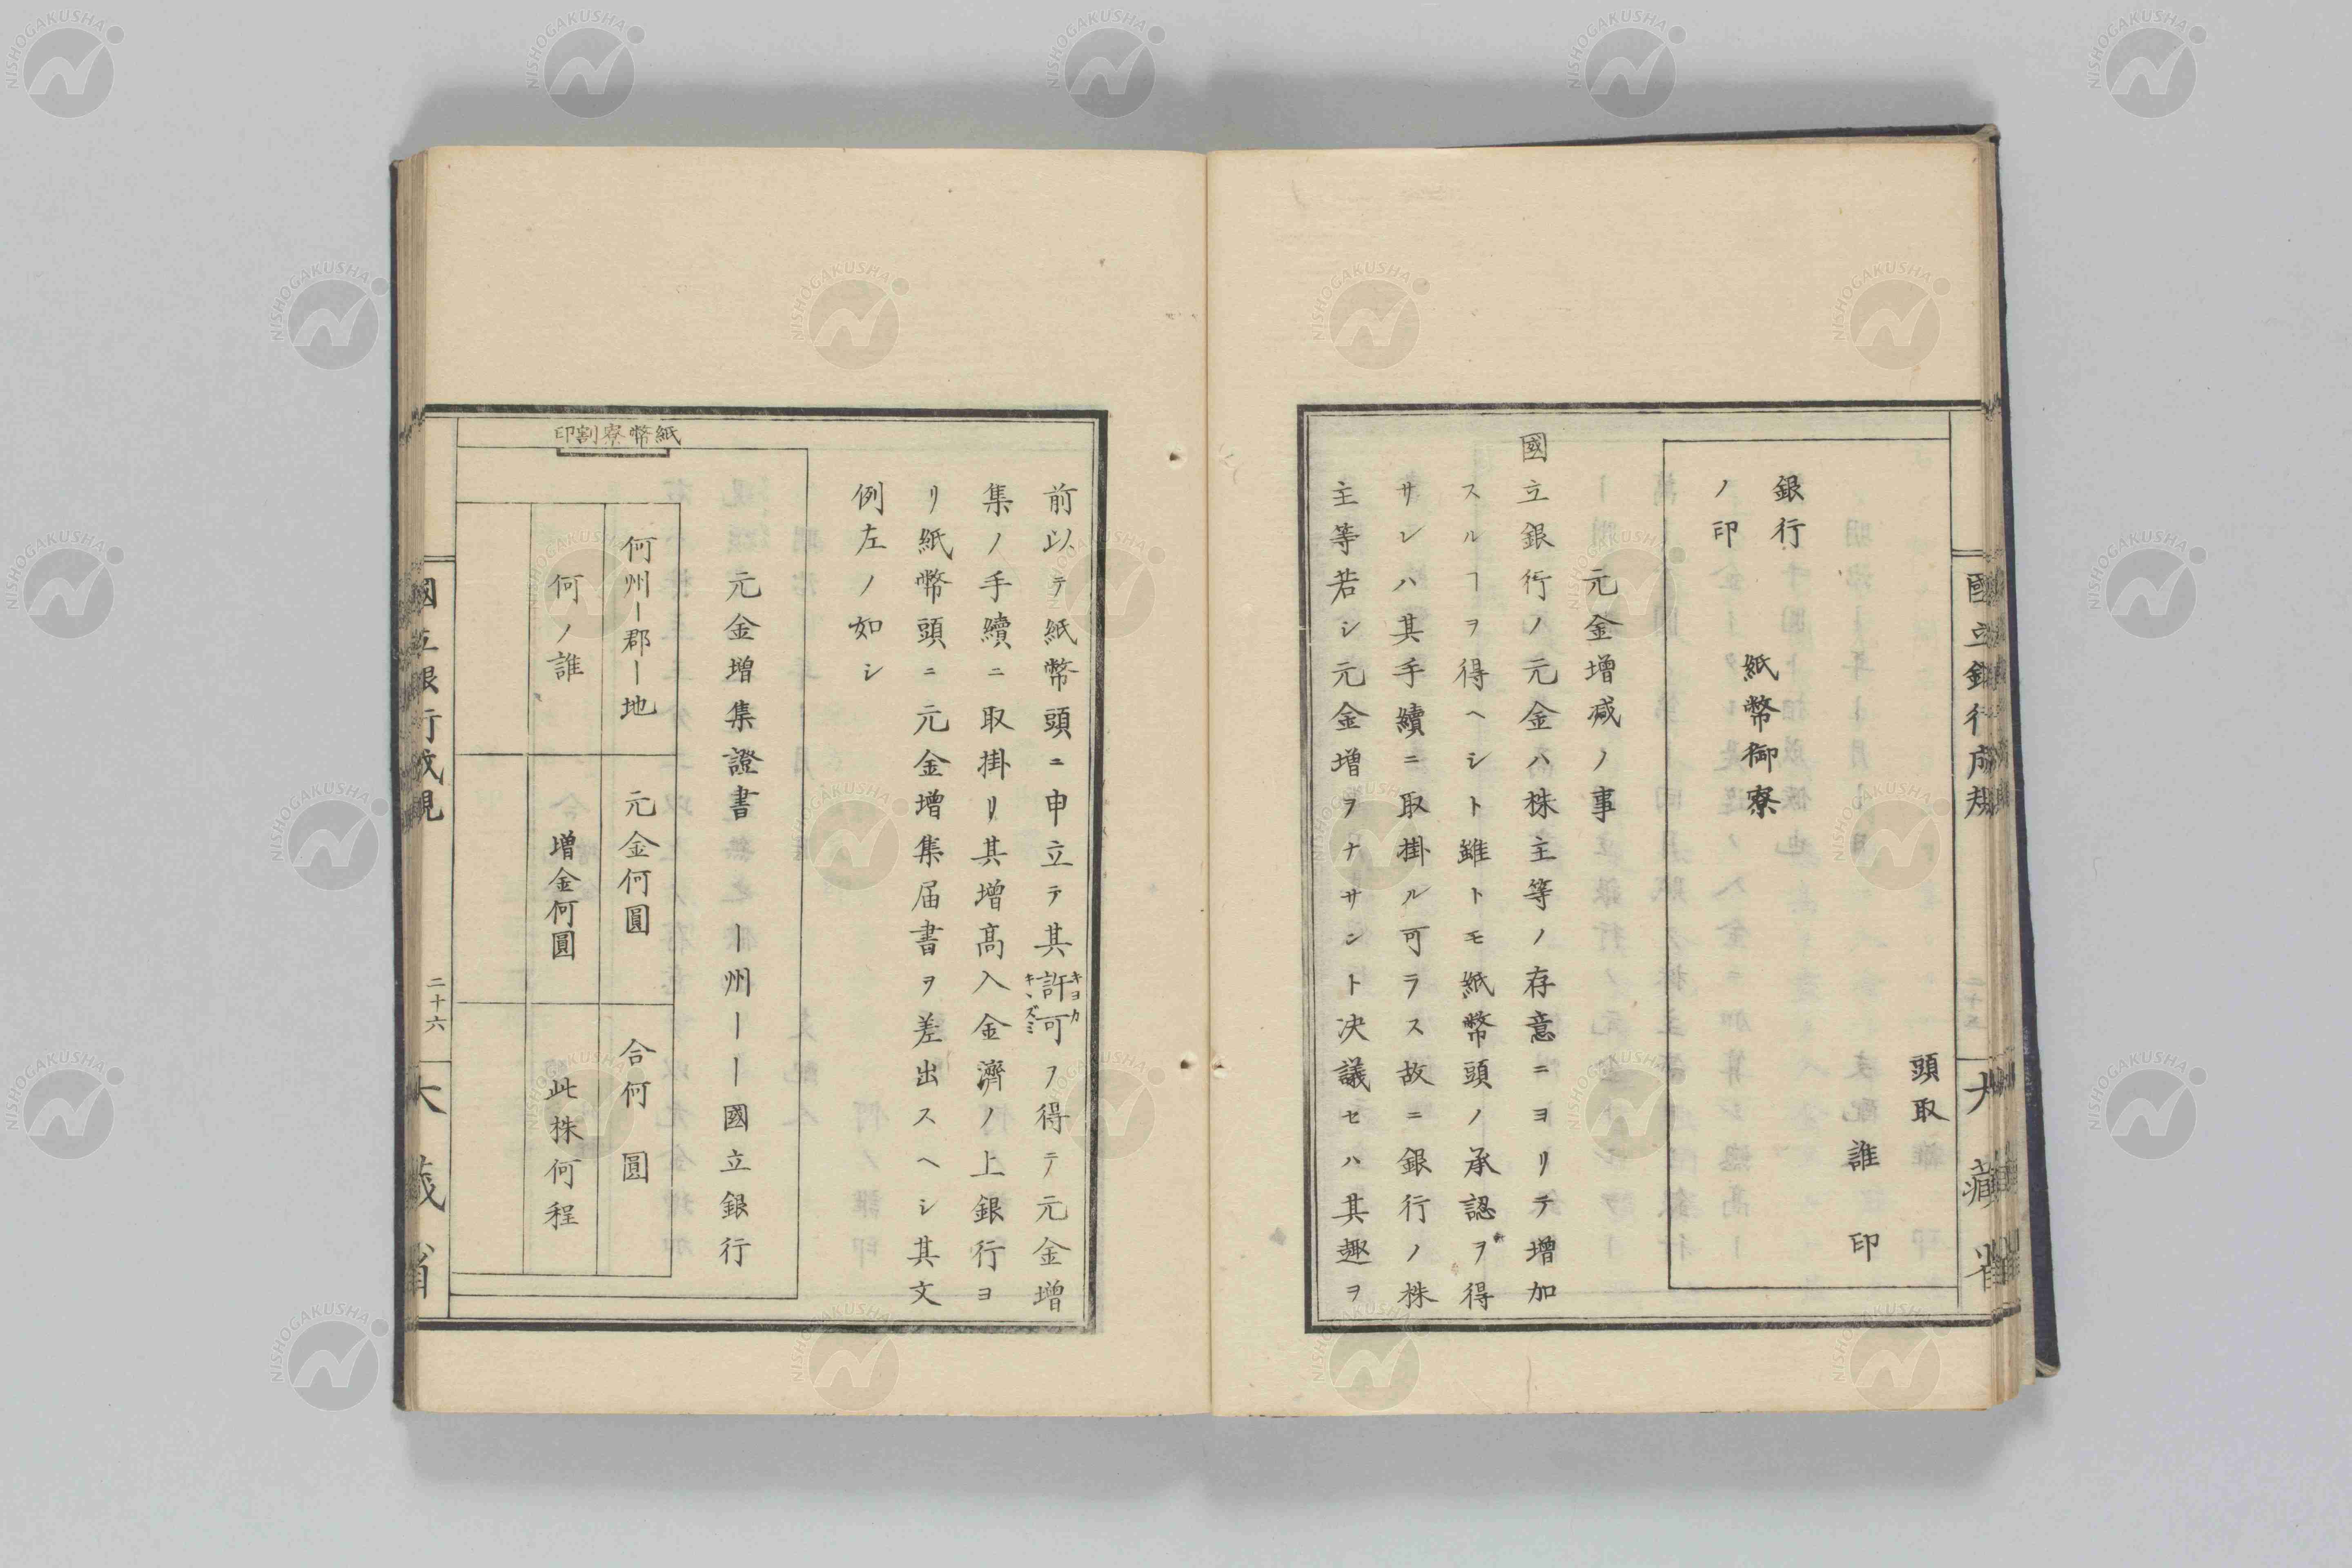 頭取
誰 印
銀行
ノ印
紙幣御寮
元金增減ノ事
國立銀行ノ元金ハ株主等ノ存意ニヨリテ增加
スルヿヲ得ヘシト雖トモ紙幣頭ノ承認ヲ得
サレハ其手續ニ取掛ル可ラス故ニ銀行ノ株
主等若シ元金增ヲナサント决議セハ其趣ヲ
國立銀行成規
大藏省
前以テ紙幣頭ニ申立テ其許可キヨカキヽズミヲ得テ元金增
集ノ手續ニ取掛リ其增髙入金濟ノ上銀行ヨ
リ紙幣頭ニ元金增集届書ヲ差出スヘシ其文
例左ノ如シ
紙幣寮割印
元金增集證書 ー州ーー國立銀行
何州ー郡ー地 元金何圓 合何 圓
何ノ誰 增金何圓 此株何程
國立銀行成規
二十六
大藏省
NISHOGAKUSHA